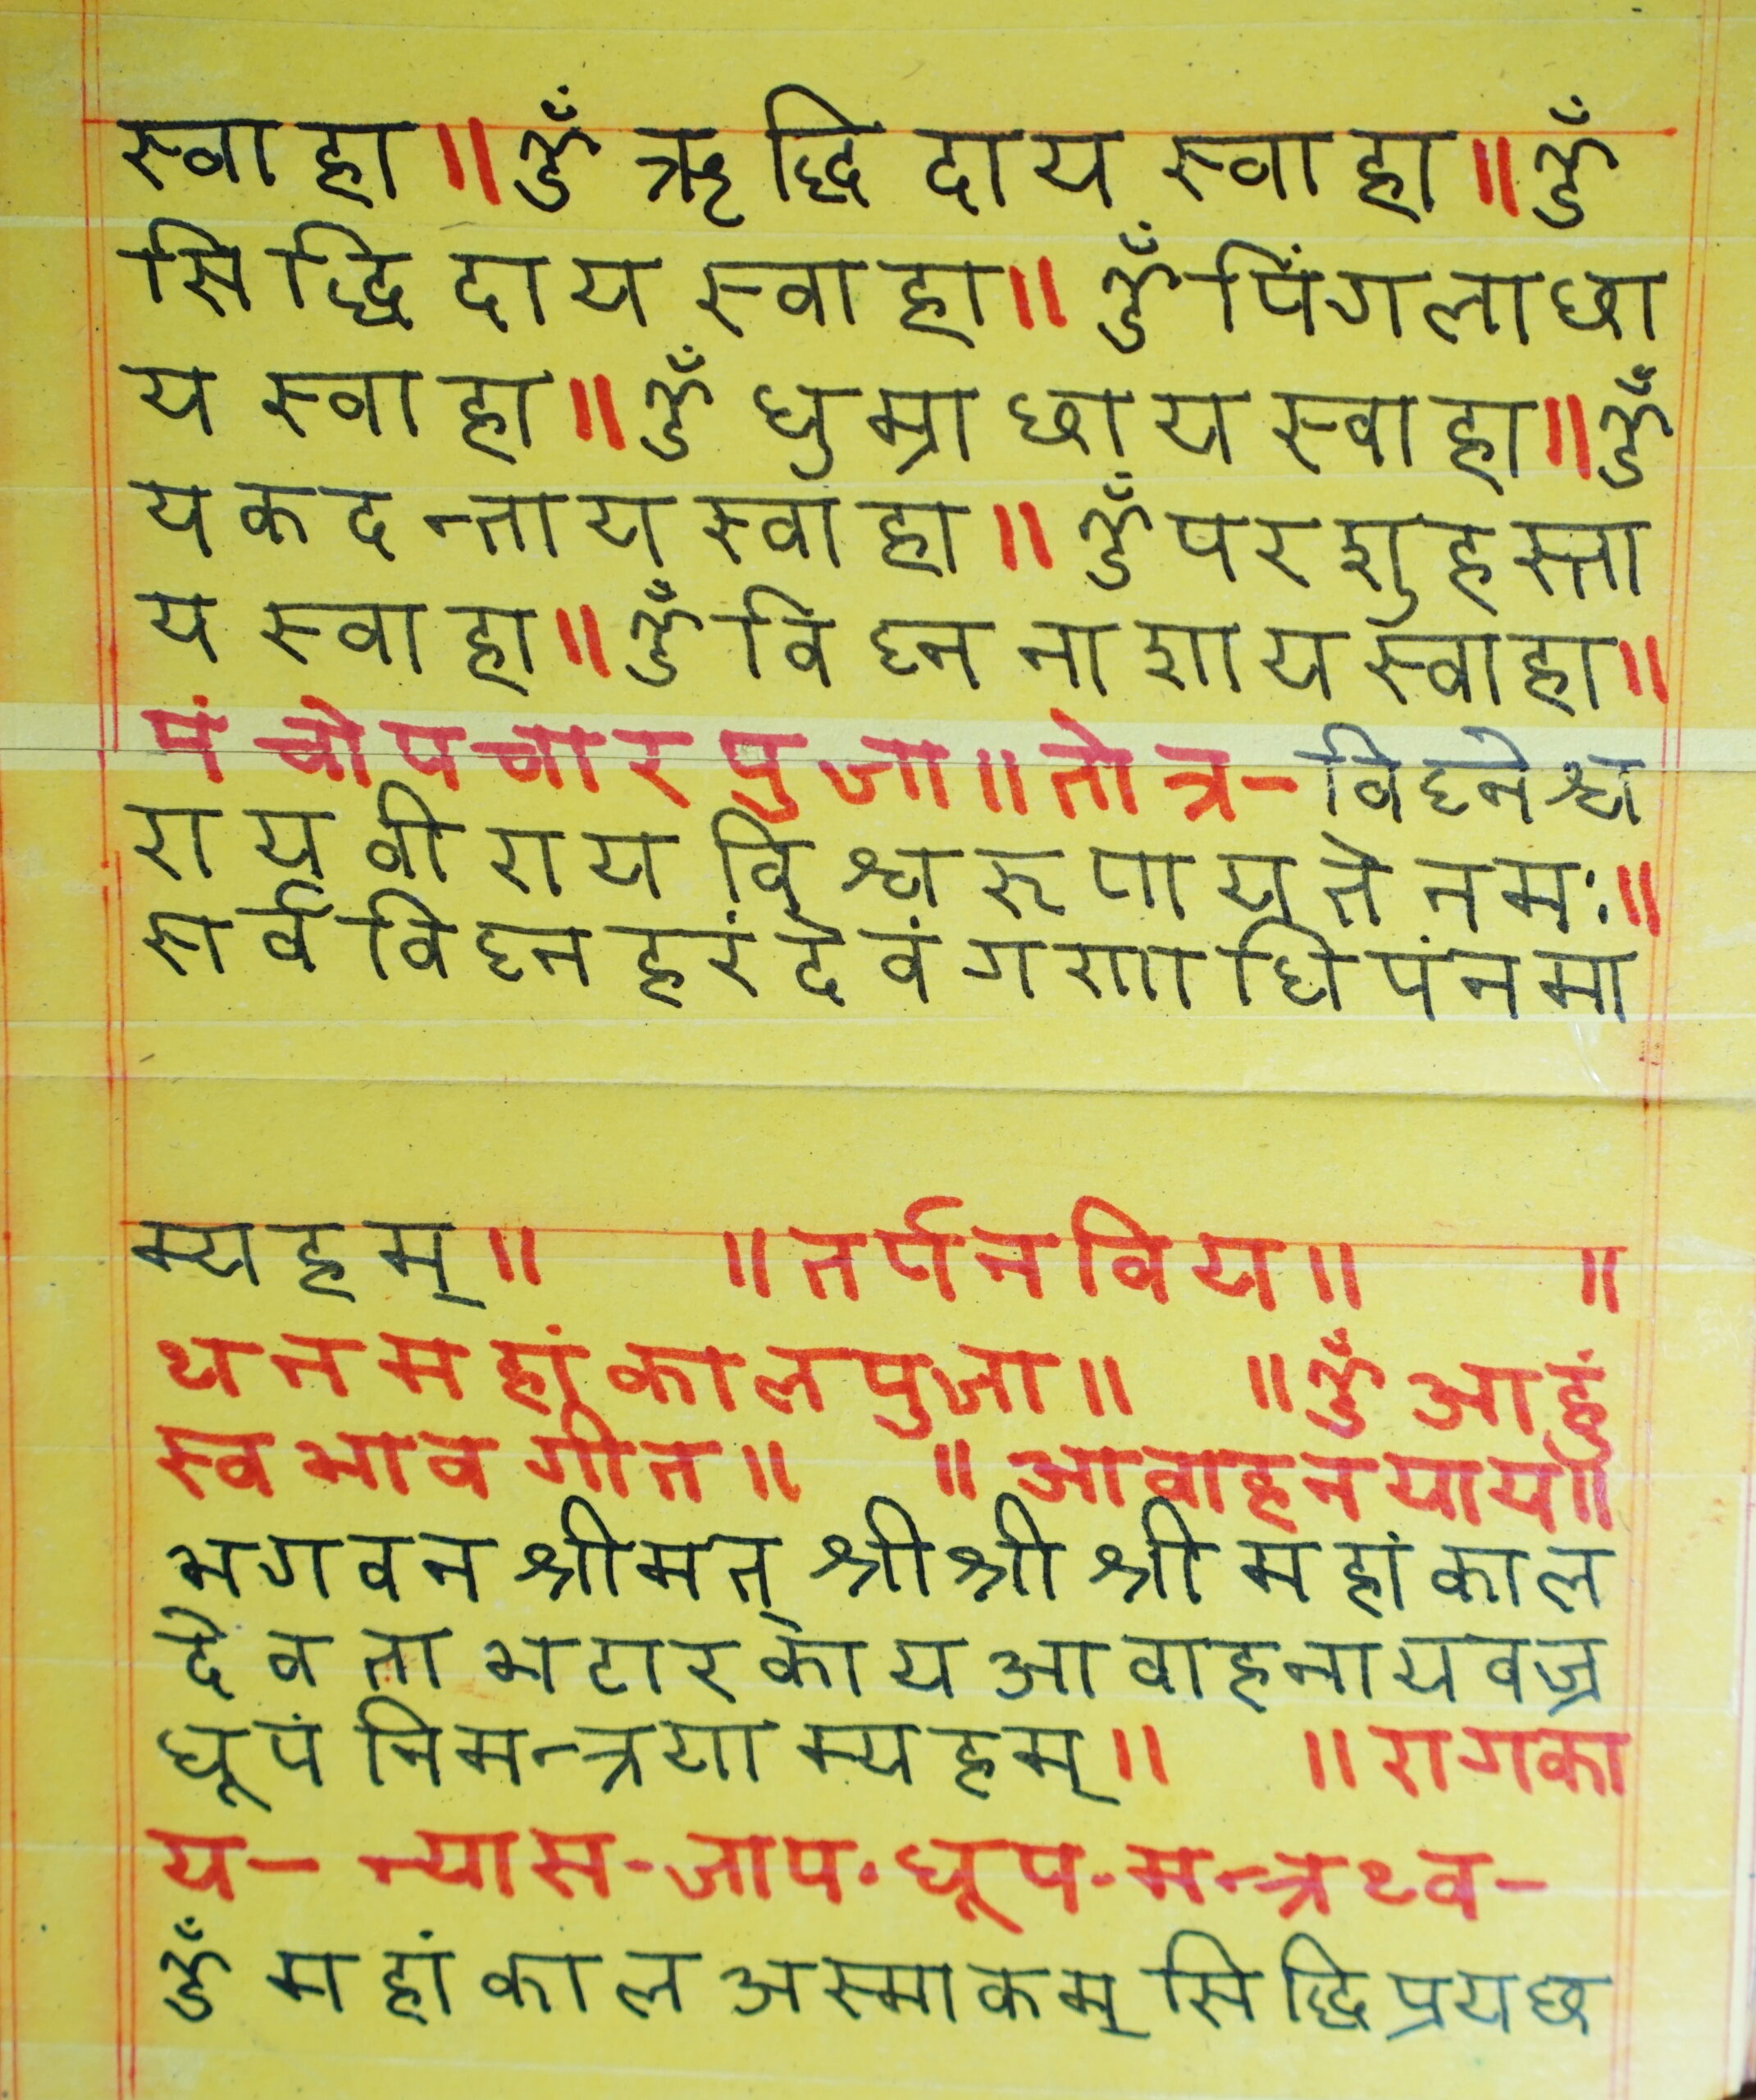 स्वाहा॥ॐ ऋद्धि दाय स्वाहा॥ॐ
सिद्धि दाय स्वाहा॥ ॐ पिंगलाछा
य स्वाहा॥ॐ धुम्राछाय स्वाहा॥ॐ
यकदन्ताय स्वाहा॥ ॐ परशुहस्ता
य स्वाहा॥ॐ विघ्न नाशाय स्वाहा॥
पंचोपचार पुजा॥तोत्र-विघ्नेश्व
राय वीराय विश्वरुपाय ते नमः॥
सर्व विघ्न हरं देवं गणाधिपं नमा
म्यहम्॥ ॥तर्पनविय॥ ॥
थन महांकाल पुजा॥ ॥ॐ आहुं
स्वभाव गीत॥ ॥आवाहनयाय॥
भगवन श्रीमत् श्रीश्रीश्री महांकाल
देवता भटारकाय आवाहनाय वज्र
धूपं निमन्त्रया म्यहम्॥ ॥रागका
य- न्यास-जाप-धूप-मन्त्रथ्व-
ॐ महांकाल अस्माकम् सिद्धि प्रयछ